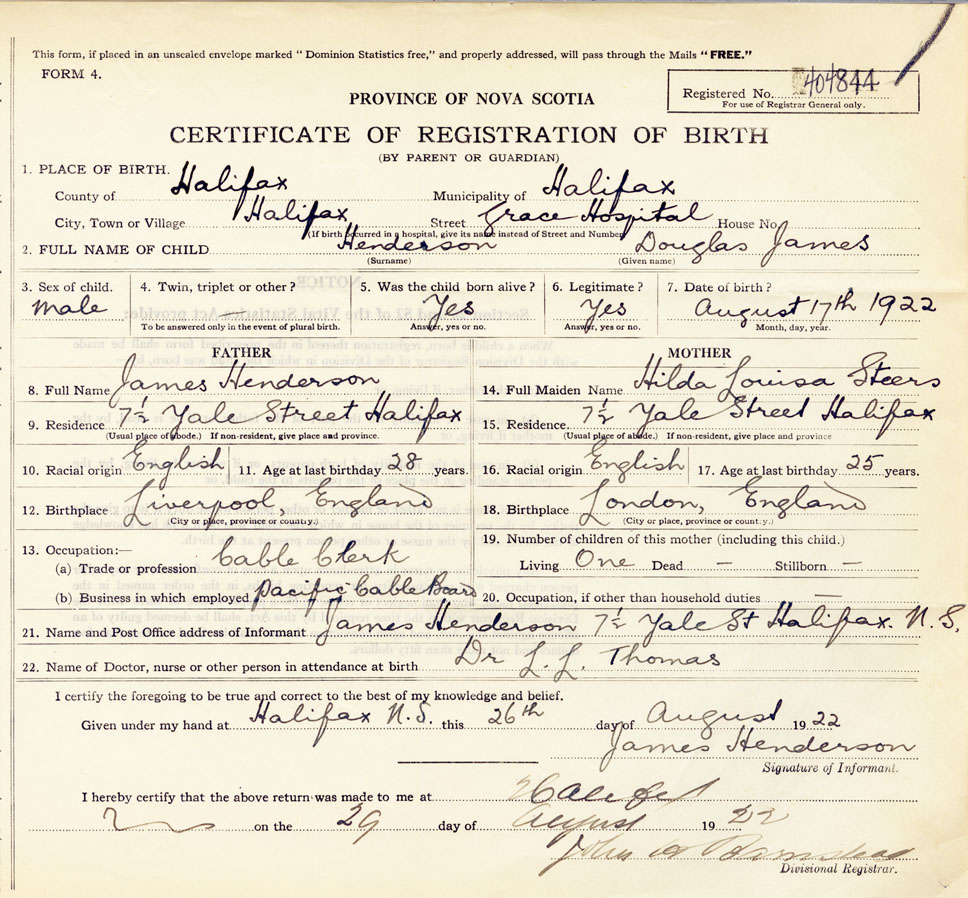 This form, if placed in an unsealed envelope marked “ Dominion Statistics free,” and properly addressed, will pass through the Mails “FREE.”
FORM 4.
Registered No. 404844
For use of Registrar General only.
PROVINCE OF NOVA SCOTIA
CERTIFICATE OF REGISTRATION OF BIRTH
(BY PARENT OR GUARDIAN)
1. PLACE OF BIRTH.
County of Halifax Municipality of Halifax
City, Town or Village Halifax Street Grace Hospital House No.
(If birth occurred in a hospital, give its name instead of Street and Number)
2. FULL NAME OF CHILD Henderson Douglas James
(Surname) (Given name)
3. Sex of child. 4. Twin, triplet or other? 5. Was the child born alive? 6. Legitimate? 7. Date of birth?
male Yes Yes August 17th 1922
To be answered only in the event of plural birth. Answer, yes or no. Answer, yes or no. Month, day, year.
FATHER MOTHER
8. Full Name James Henderson 14. Full Maiden Name Hilda Louisa Steers
9. Residence 7½ Yale Street Halifax 15. Residence. 7½ Yale Street Halifax
(Usual place of abode.) If non-resident, give place and province. (Usual place of abode.) If non-resident, give place and province
10. Racial origin English 11. Age at last birthday 28 years. 16. Racial origin English 17. Age at last birthday 25 years.
12. Birthplace Liverpool, England 18. Birthplace London, England
(City or place, province or country.) (City or place, province or country.)
13. Occupation:— 19. Number of children of this mother (including this child.)
(a) Trade or profession Cable Clerk Living One Dead — Stillborn —
(b) Business in which employed Pacific Cable Board 20. Occupation, if other than household duties —
21. Name and Post Office address of Informant James Henderson 7½ Yale St Halifax. N.S.
22. Name of Doctor, nurse or other person in attendance at birth Dr L. L. Thomas
I certify the foregoing to be true and correct to the best of my knowledge and belief.
Given under my hand at Halifax N.S. this 26th day of August 1922
James Henderson
Signature of Informant.
I hereby certify that the above return was made to me at Halifax
on the 29 day of August 1922
John
Divisional Registrar.